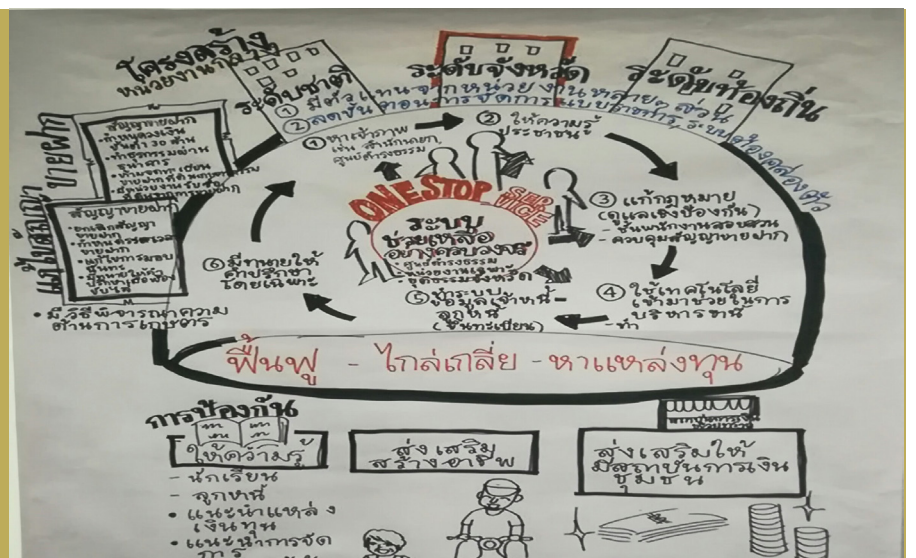 โครงสร้าง
หน่วยงานกลาง
ระดับชาติ
ระดับจังหวัด
ระดับท้องถิ่น
① มีตัวแทนจากหน่วยงานหลายๆ ส่วน
② ลดขั้นตอนการจัดการแบบราชการ, ระบบคล่องตัว
แก้ไขสัญญา ขายฝาก
สัญญาขายฝาก
• กำหนดวงเงิน
ขั้นต่ำ 30 ล้าน
• ทำธุรกรรมผ่าน
ธนาคาร
สัญญาขายฝาก
• ยกเลิกสัญญา
ขายฝาก
• มีวิธีพิจารณาความ
ด้านการเกษตร
① หาเจ้าภาพ
เช่น สำนักนายก,
ศูนย์ดำรงธรรม
② ให้ความรู้
ประชาชน
③ แก้กฎหมาย
(ดูแลเชิงป้องกัน)
- ชั้นพนักงานสอบสวน
- ควบคุมสัญญาขายฝาก
④ ใช้เทคโนโลยี
เข้ามาช่วยในการ
บริหารหนี้
- ทำ
⑤ ทำระบบ
ข้อมูลเจ้าหนี้-
ลูกหนี้
(ขึ้นทะเบียน)
⑥ มีทนายให้
คำปรึกษา
โดยเฉพาะ
ONE STOP SERVICE
ระบบ
ช่วยเหลือ
อย่างครบวงจร
• ศูนย์ดำรงธรรม
• หน่วยงานเฉพาะ
• ยุติธรรมจังหวัด
ฟื้นฟู - ไกล่เกลี่ย - หาแหล่งทุน
การป้องกัน
ให้ความรู้
- นักเรียน
- ลูกหนี้
• แนะนำแหล่ง
เงินทุน
• แนะนำการจัด
การ
ส่งเสริม
สร้างอาชีพ
ส่งเสริมให้
มีสถาบันการเงิน
ชุมชน